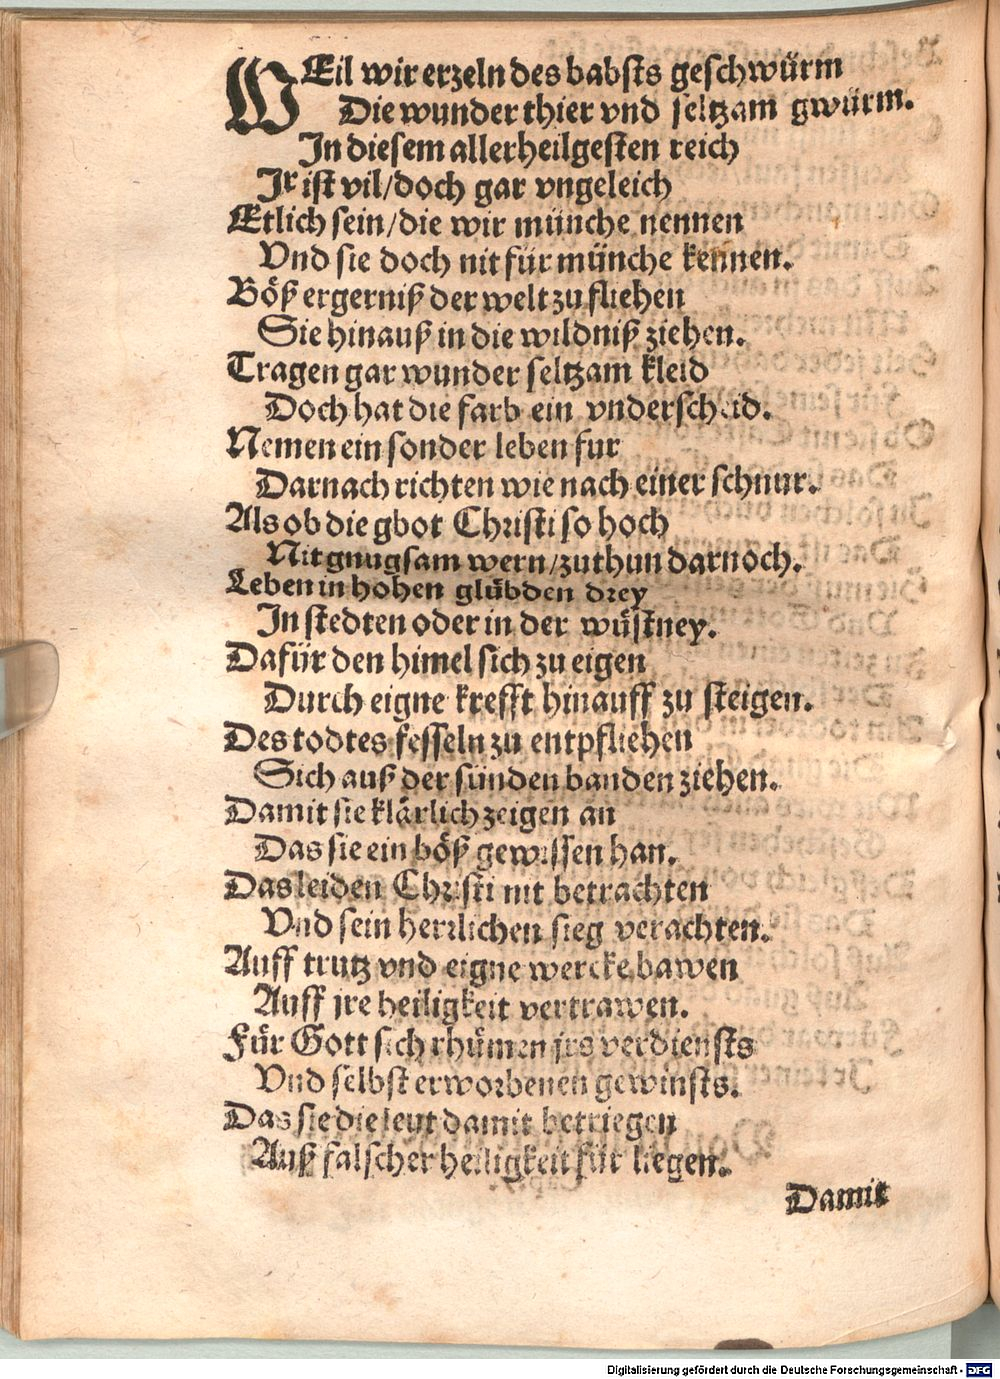 WEil wir erzeln des babsts geschwürm
Die wunder thier vnd seltzam gwürm.
In diesem allerheilgesten reich
Jr ist vil/doch gar vngeleich
Etlich sein/die wir münche nennen
Vnd sie doch nit für münche kennen.
Böß ergerniß der welt zu fliehen
Sie hinauß in die wildniß ziehen.
Tragen gar wunder seltzam kleid
Doch hat die farb ein vnderscheid.
Nemen ein sonder leben fur
Darnach richten wie nach einer schnur.
Als ob die gbot Christi so hoch
Nit gnugsam wern/zuthun darnoch.
Leben in hohen glübden drey
In stedten oder in der wüstney.
Dafür den himel sich zu eigen
Durch eigne krefft hinauff zu steigen.
Des todtes fesseln zu entpfliehen
Sich auß der sünden banden ziehen.
Damit sie klärlich zeigen an
Das sie ein böß gewissen han.
Das leiden Christi nit betrachten
Vnd sein herrlichen sieg verachten.
Auff trutz vnd eigne wercke bawen
Auff jre heiligkeit vertrawen.
Für Gott sich rhümen jrs verdiensts
Vnd selbst erworbenen gewinsts.
Das sie die leut damit betriegen
Auß falscher heiligkeit für liegen.
Damit
Digitalisierung gefördert durch die Deutsche Forschungsgemeinschaft - DFG